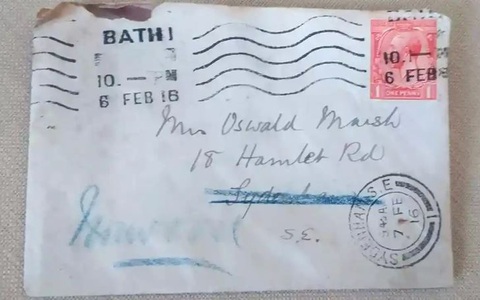 BATH 1
10. — PM
6 FEB 16
10.
6 FEB
ONE PENNY
1 1
Mrs Oswald Marsh
18 Hamlet Rd
Sydenham
S.E.
SYDENHAM S.E.
7 FE
16